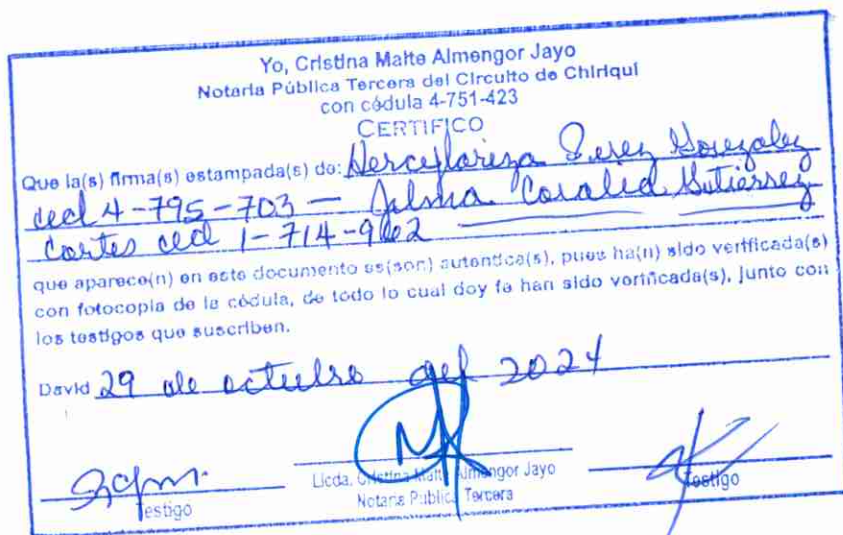 Yo, Cristina Maite Almengor Jayo
Notaria Pública Tercera del Circuito de Chiriquí
con cédula 4-751-423
CERTIFICO
Que la(s) firma(s) estampada(s) de: Perez Gonzalez
ced 4-795-703 — Coralia Gutiérrez
Cortes ced 1-714-962
que aparece(n) en este documento es(son) autentica(s), pues ha(n) sido verificada(s)
con fotocopia de la cédula, de todo lo cual doy fe han sido verificada(s), junto con
los testigos que suscriben.
David 29 de octubre del 2024
Licda. Cristina Maite Almengor Jayo
Testigo Notaria Pública Tercera Testigo